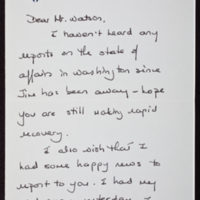 Dear Mr. Watson,
I haven't heard any
reports on the state of
affairs in Washington since
Jim has been away - hope
you are still making rapid
recovery.
I also wish that I
had some happy news to
report to you. I had my
yesterday